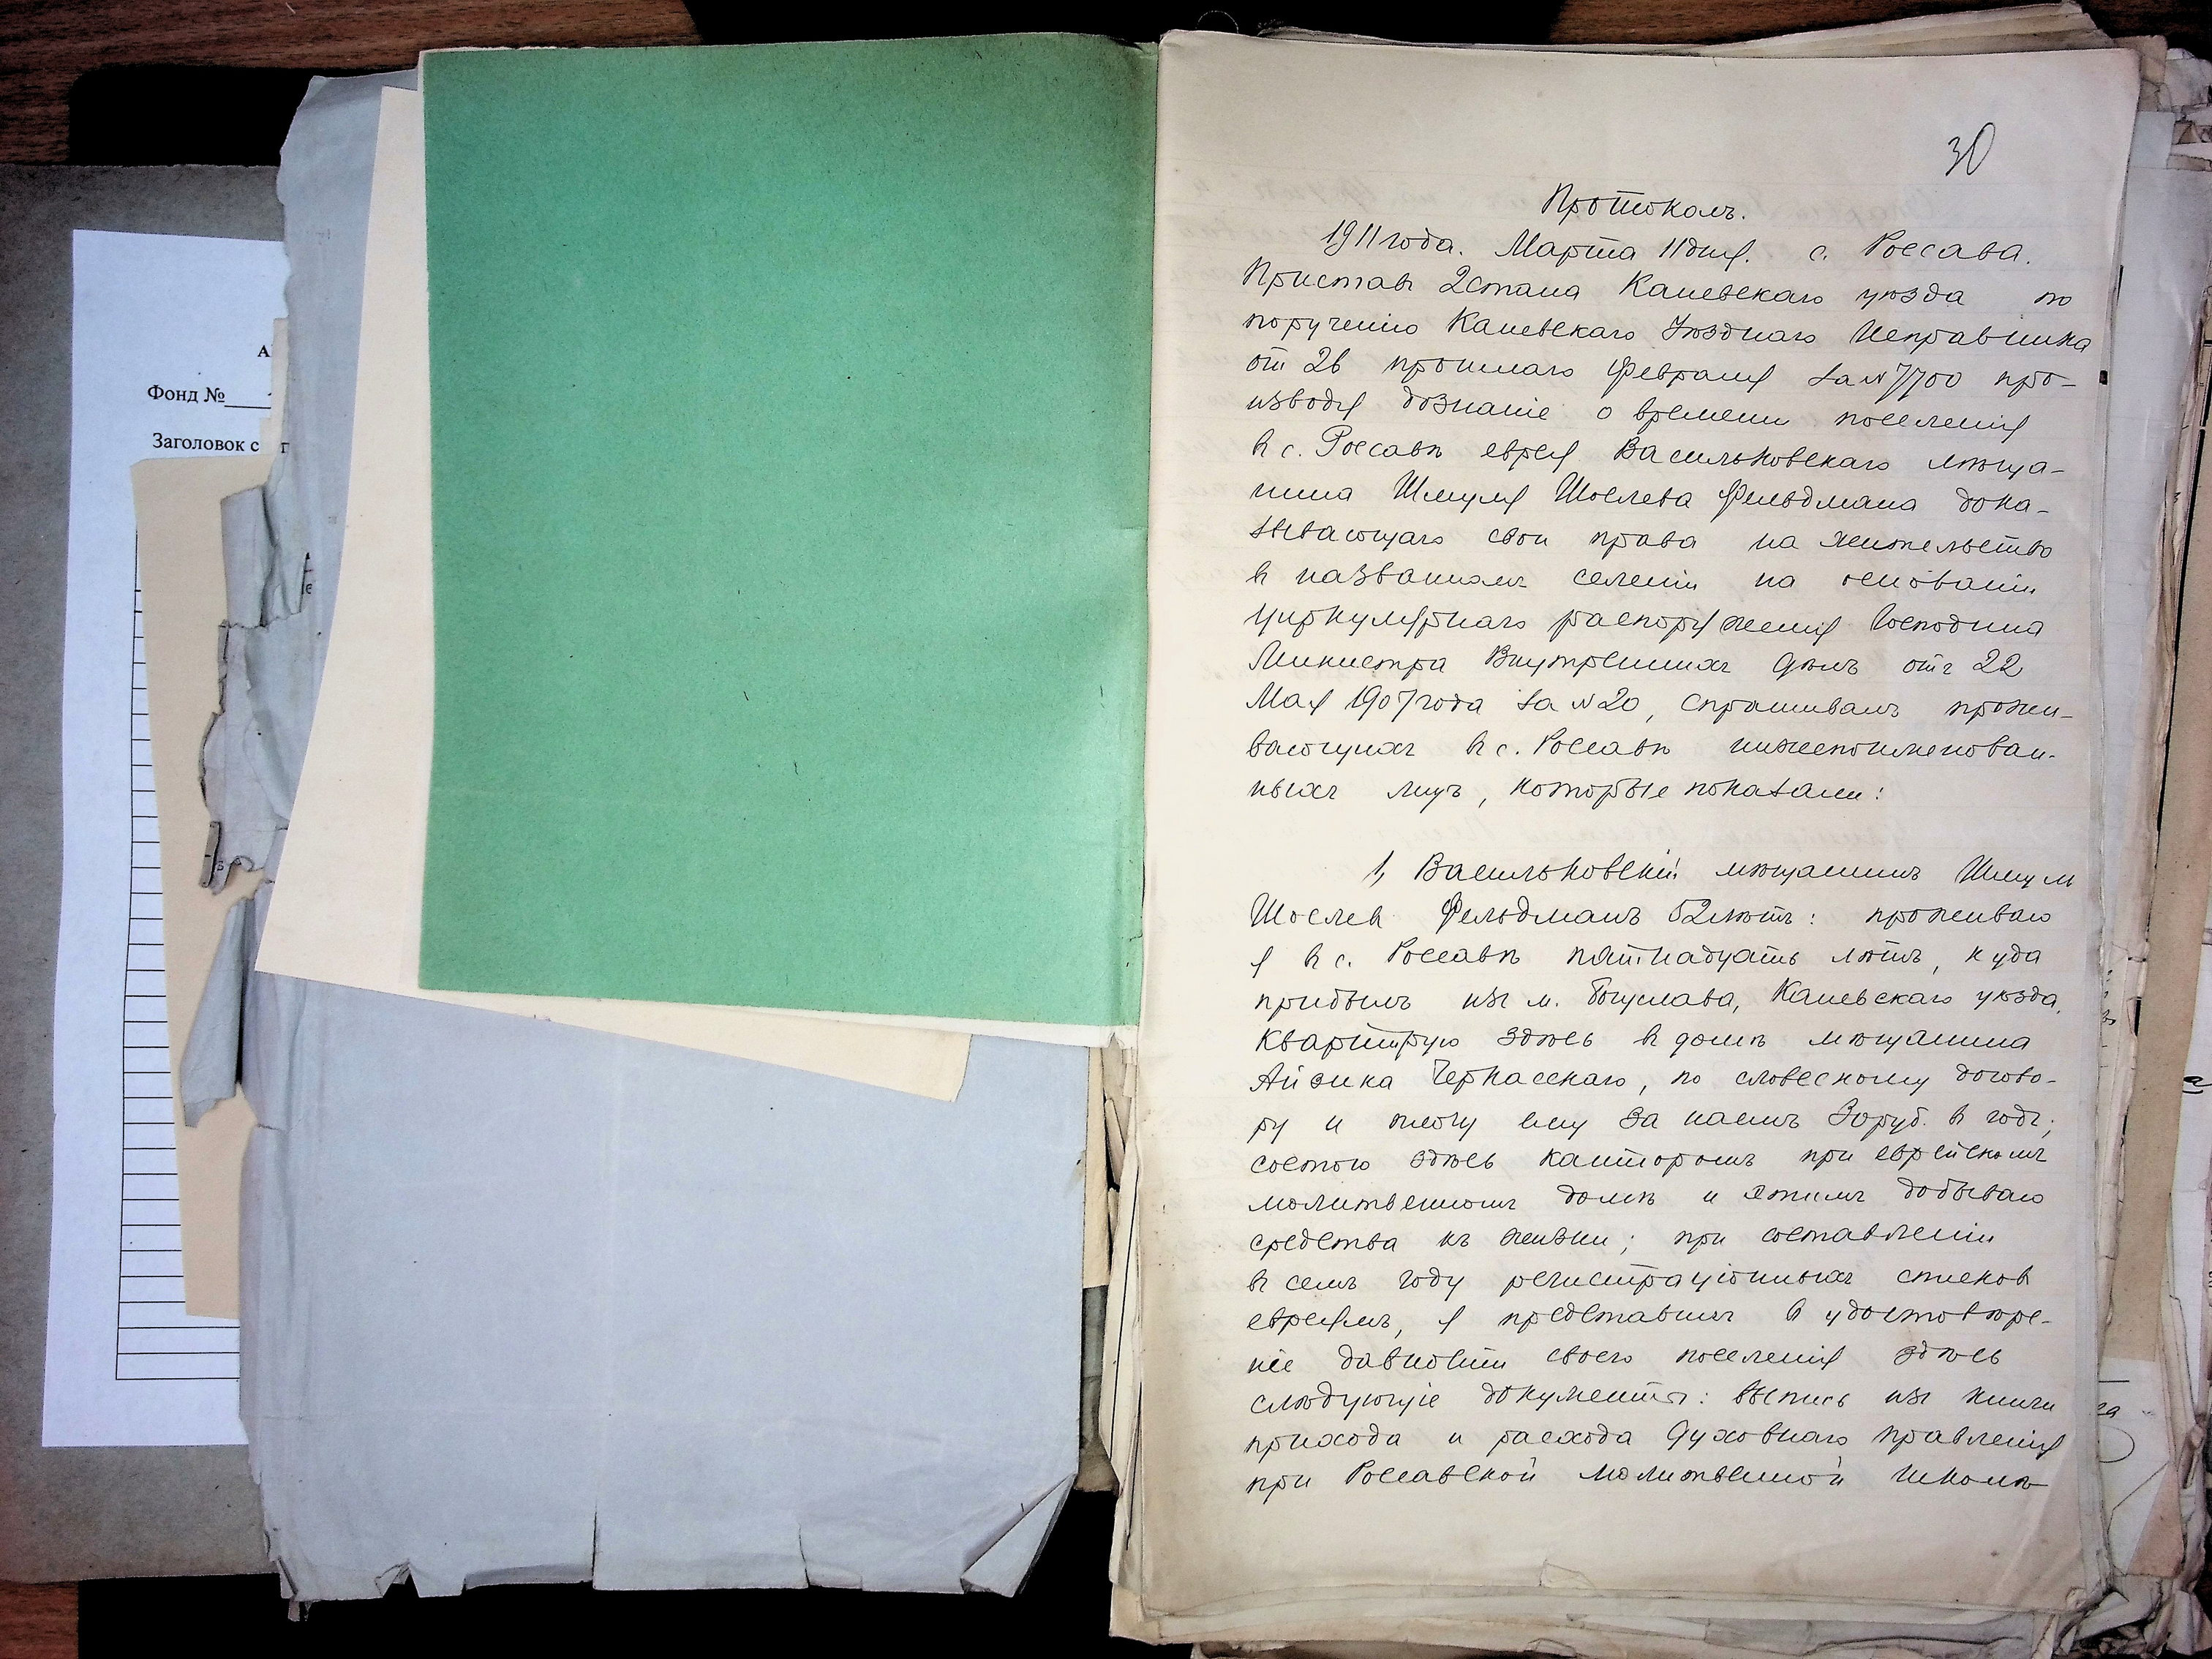 А
Фонд №
Заголовок с
30
Протоколъ.
1911 года. Марта 11 дня. с. Россава.
Приставъ 2 стана Каневскаго уѣзда по
порученію Каневскаго Уѣзднаго Исправника
отъ 26 прошлаго Февраля за № 7700 про-
изводя дознаніе о времени поселенія
в с. Россавѣ еврея Васильковскаго мѣща-
нина Шмуля Шослева Фельдмана дока-
зывающаго свои права на жительство
в названномъ селеніи на основаніи
циркулярнаго распоряженія Господина
Министра Внутреннихъ Дѣлъ отъ 22
Мая 1907 года за № 20, спрашивалъ прожи-
вающихъ в с. Россавѣ нижепоименован-
ныхъ лицъ, которые показали:
1, Васильковскій мѣщанинъ Шмуль
Шослев Фельдманъ 52 лѣтъ: проживаю
я в с. Россавѣ пятнадцать лѣтъ, куда
прибылъ изъ м. Богуслава, Каневскаго уѣзда,
квартирую здѣсь в домѣ мѣщанина
Айзика Черкасскаго, по словесному догово-
ру и плачу ему за наемъ 30 руб. в годъ;
состою здѣсь канторомъ при еврейскомъ
молитвенномъ домѣ и этимъ добываю
средства къ жизни; при составленіи
в семъ году регистраціонныхъ списков
евреямъ, я представилъ в удостовѣре-
ніе давности своего поселенія здѣсь
слѣдующіе документы: выпись изъ книги
прихода и расхода Духовнаго правленія
при Россавской молитвенной школѣ